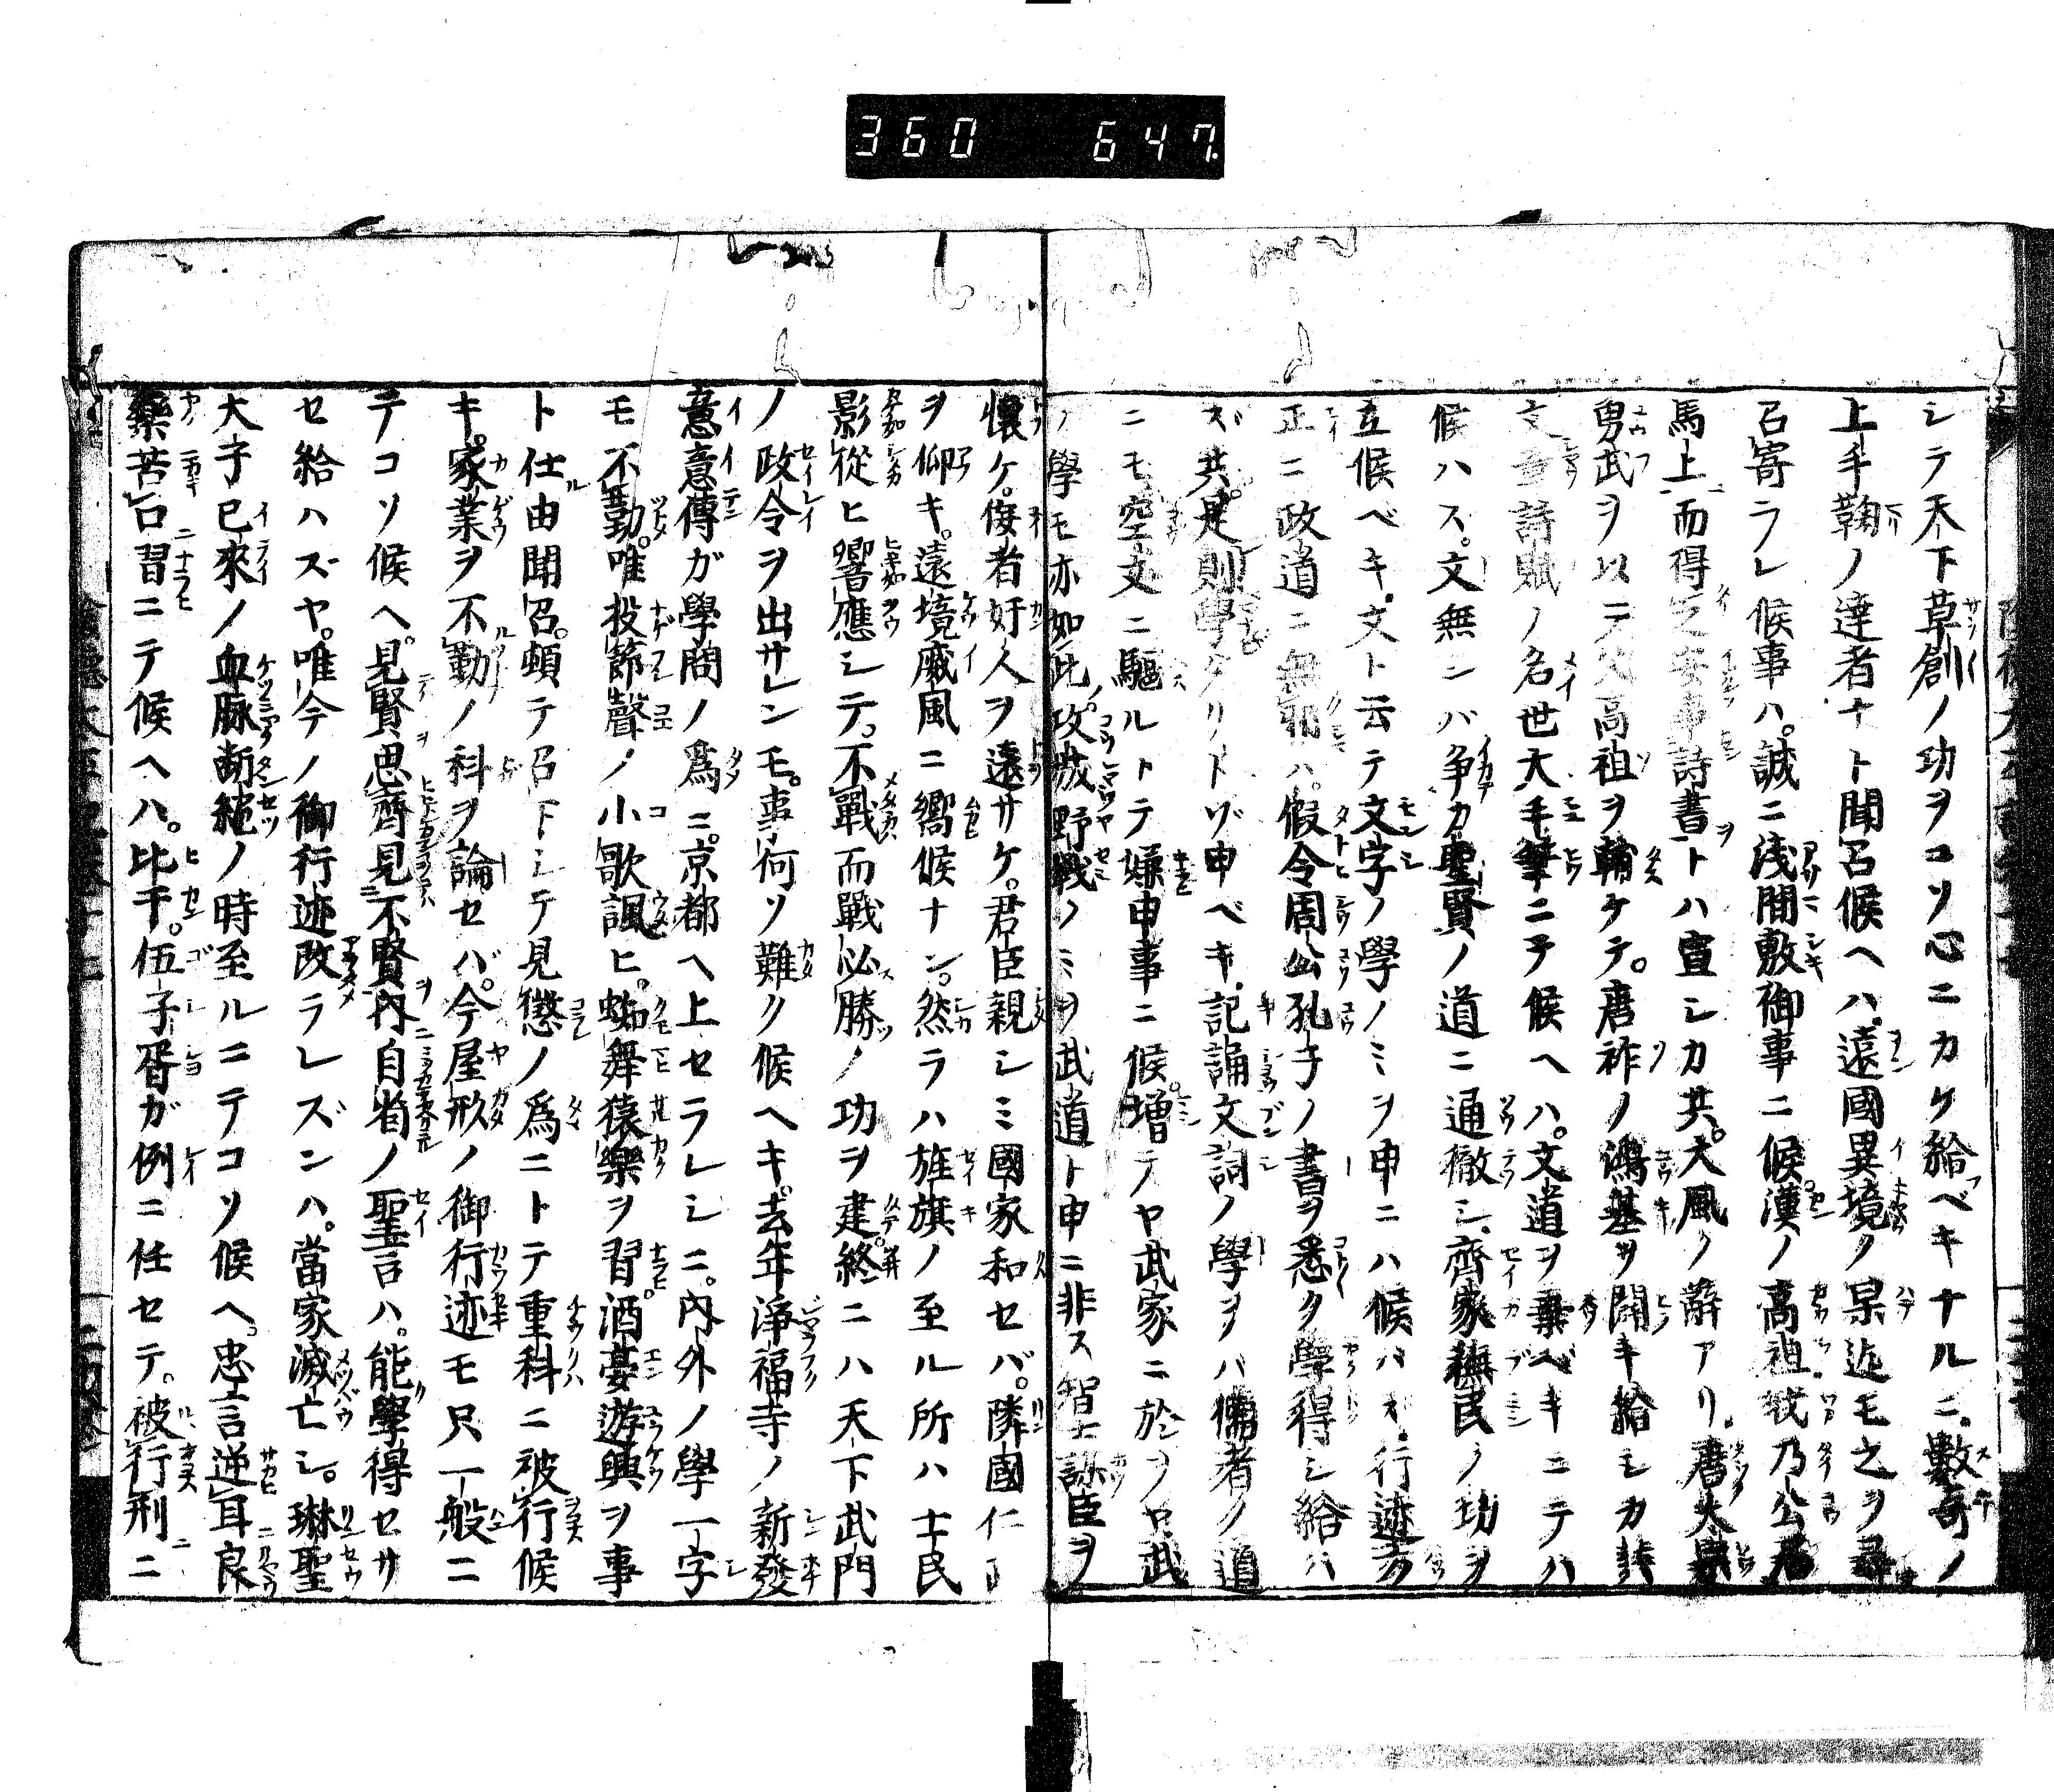 360 647
シテ天下草創ノ功ヲコソ心ニカケ給ベキナルニ。數奇ノ
上手鞠ノ達者ナト聞召候ヘハ。遠國異境ノ果迄モ之ヲ尋
召寄ラレ候事ハ。誠ニ浅間敷御事ニ候。漢ノ高祖我乃公居
馬上而得之安事詩書トハ宣シカ共。大風ノ辭アリ。唐
勇武ヲ以テ父高祖ヲ輔ケテ。唐祚ノ鴻基ヲ開キ給シカ共
文章詩賦ノ名世大手筆ニテ候ヘハ。文道ヲ棄ベキニテハ
候ハス。文無ンバ争カ聖賢ノ道ニ通徹シ。齊家撫民ノ功ヲ
立候ベキ。文ト云テ文字ノ學ノミヲ申ニハ候ハズ。行迹
正ニ政道ニ無邪ハ。假令周公孔子ノ書ヲ悉ク學得シ給ハ
ズ共。是則學タリトゾ申ベキ。記誦文詞ノ學ヲバ儒者ノ道
ニモ空文ニ驅ルトテ嫌申事ニ候。増テヤ武家ニ於ヲヤ。武
ノ學モ亦如此。攻城野戰ノミヲ武道ト申ニ非ス智士謀臣ヲ
懷ケ。佞者奸人ヲ遠サケ。君臣親シミ國家和セバ。隣國仁
ヲ仰キ。遠境威風ニ嚮候ナン。然ラハ旌旗ノ至ル所ハ士民
影從ヒ響應シテ。不戰而戰必勝ノ功ヲ建。終ニハ天下武門
ノ政令ヲ出サレンモ。事何ソ難ク候ヘキ。去年淨福寺ノ新發
意意傳ガ學問ノ爲ニ。京都ヘ上セラレシニ。内外ノ學一字
モ不勤。唯投節聲ノ小歌諷ヒ。蜘舞猿樂ヲ習。酒宴遊興ヲ事
ト仕由聞召。頓テ召下シテ見懲ノ爲ニトテ重科ニ被行候
キ。家業ヲ不勤ノ科ヲ論セバ。今屋形ノ御行迹モ只一般ニ
テコソ候ヘ。見賢思齊見不賢内自省ノ聖言ハ。能學得セサ
セ給ハズヤ。唯今ノ御行迹改ラレズンハ。當家滅亡シ。琳聖
太子已來ノ血脉断絶ノ時至ルニテコソ候ヘ。忠言逆耳良
藥苦口習ニテ候ヘハ。比干。伍子胥ガ例ニ任セテ。被行刑ニ